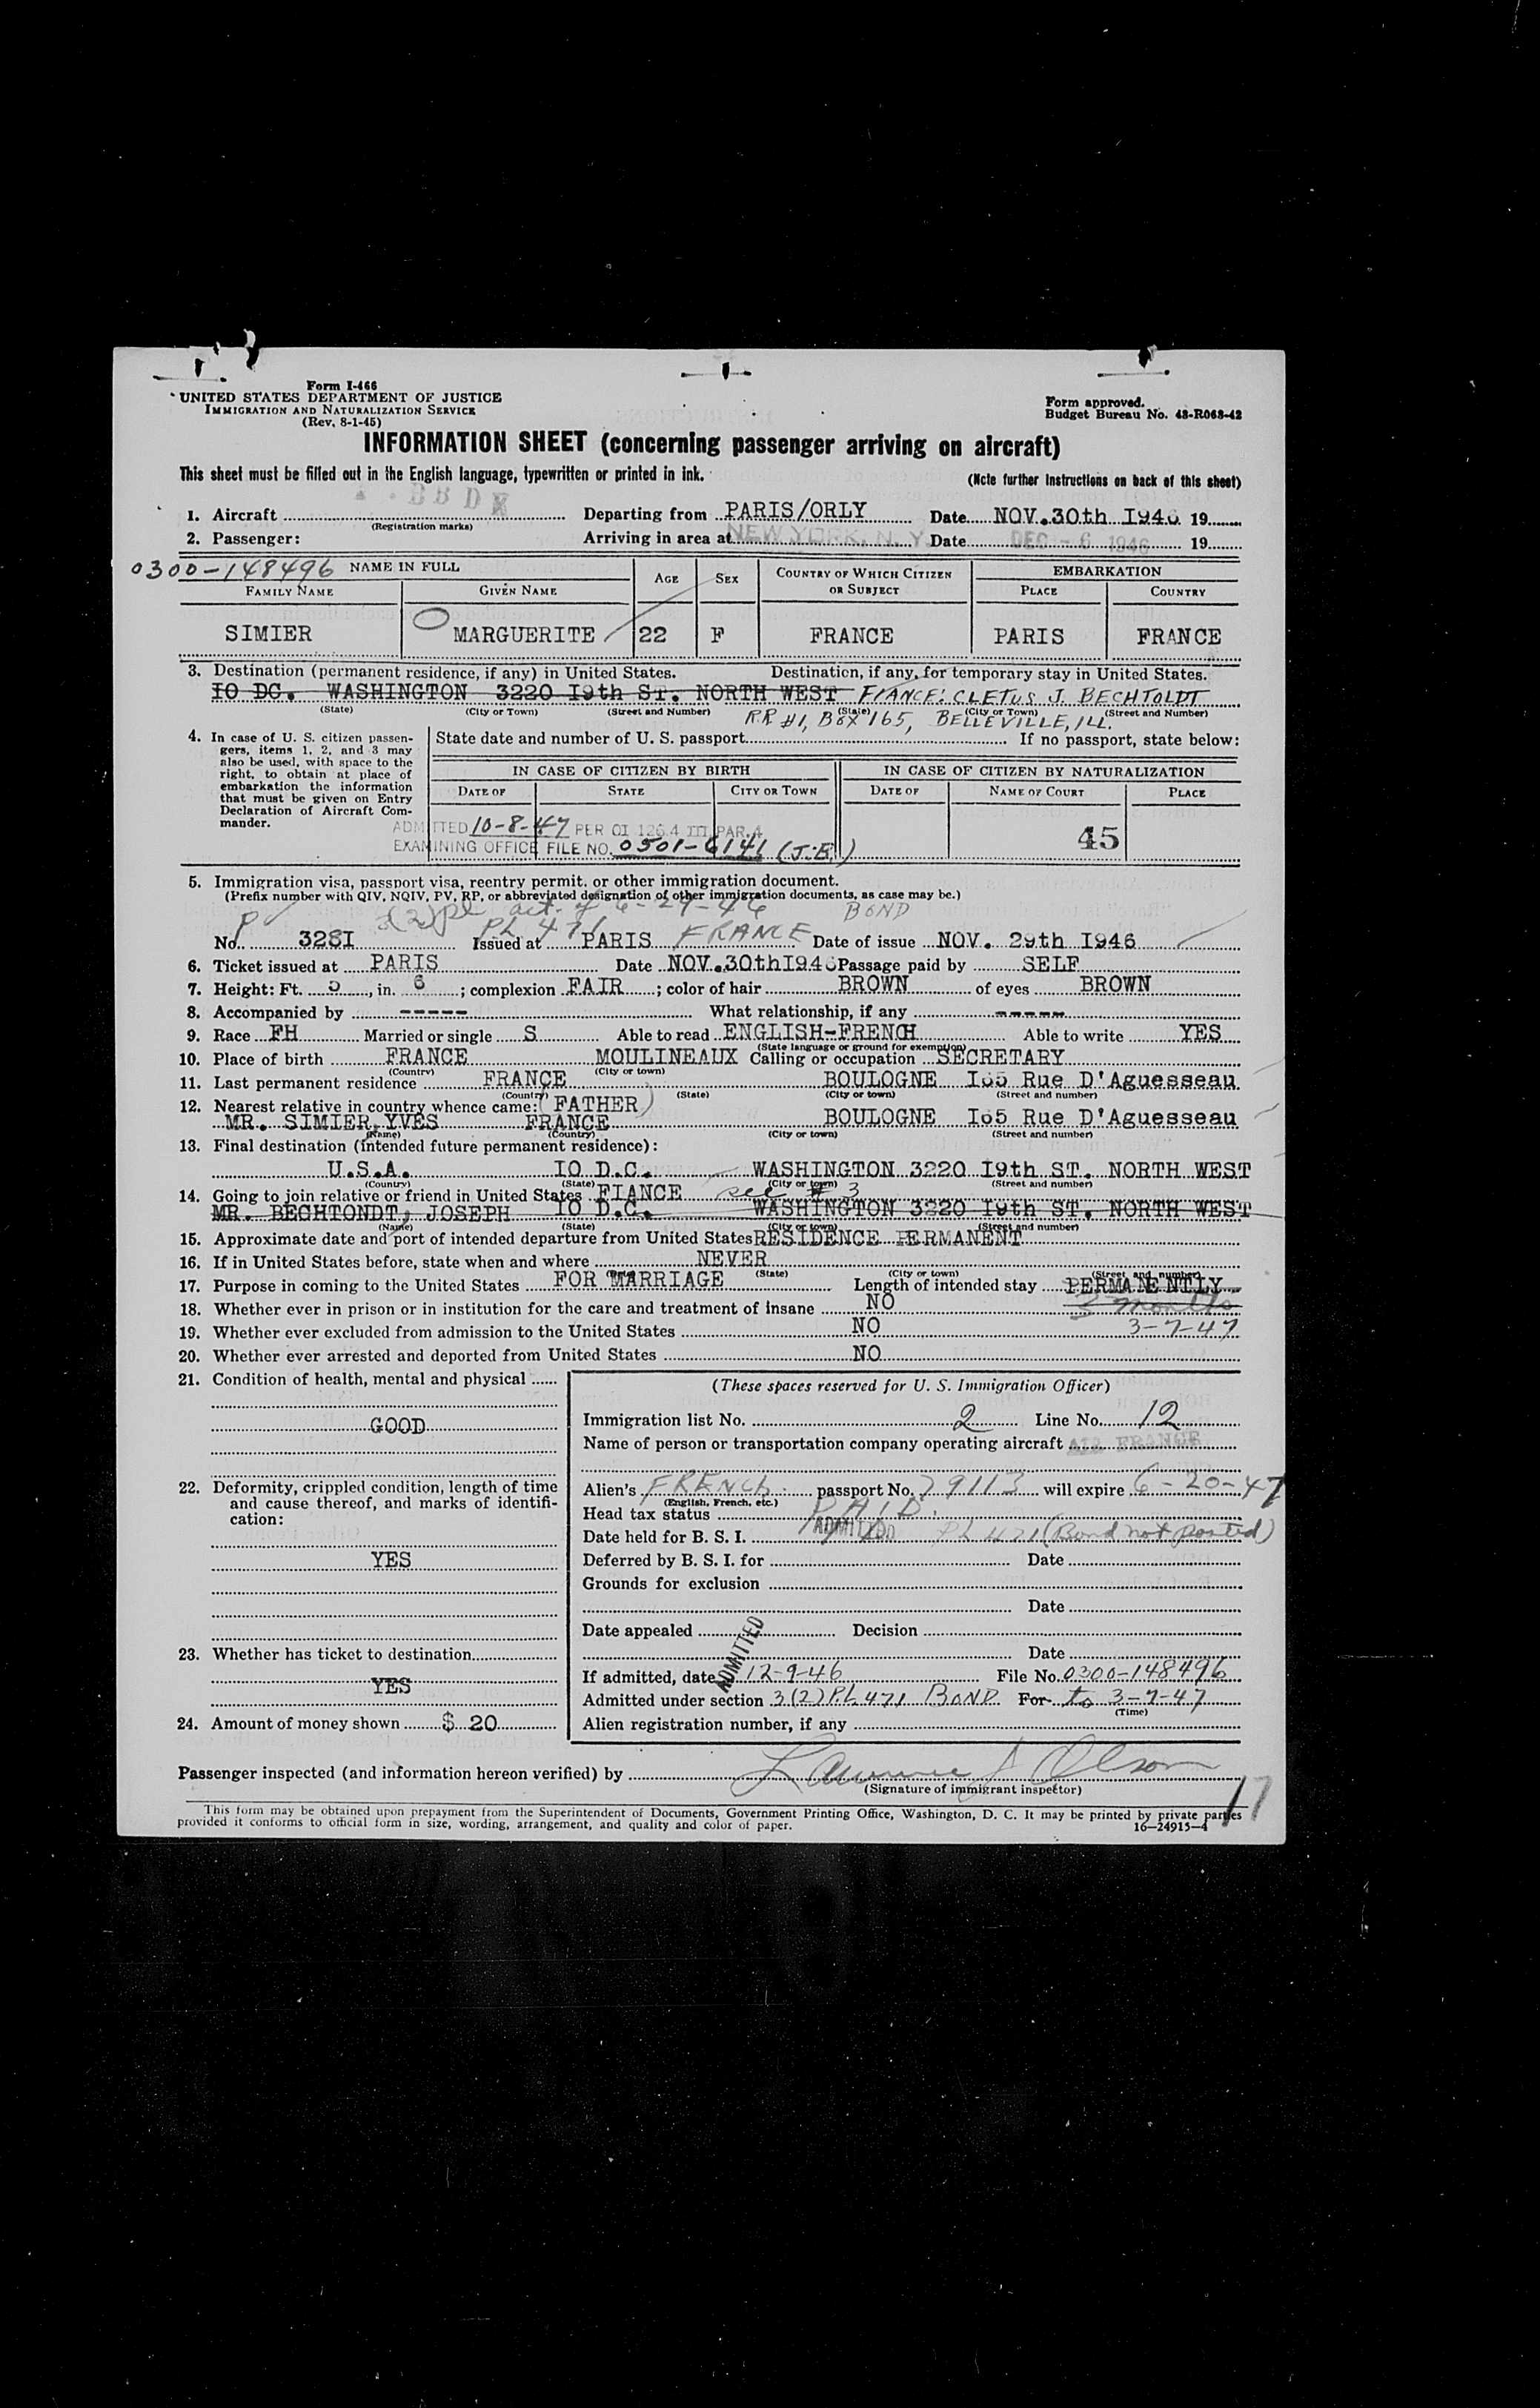 Form I-466
UNITED STATES DEPARTMENT OF JUSTICE
IMMIGRATION AND NATURALIZATION SERVICE
(Rev. 8-1-45)
Form approved.
Budget Bureau No. 43-R063-42
INFORMATION SHEET (concerning passenger arriving on aircraft)
This sheet must be filled out in the English language, typewritten or printed in ink.
(Note further instructions on back of this sheet)
1. Aircraft Departing from PARIS/ORLY Date NOV.30th I946 19
(Registration marks)
2. Passenger: Arriving in area at NEW YORK, N. Y. Date DEC - 6 1946 19
0300-148496 NAME IN FULL AGE SEX COUNTRY OF WHICH CITIZEN OR SUBJECT EMBARKATION
FAMILY NAME GIVEN NAME PLACE COUNTRY
SIMIER MARGUERITE 22 F FRANCE PARIS FRANCE
3. Destination (permanent residence, if any) in United States. Destination, if any, for temporary stay in United States.
IO DC. WASHINGTON 3220 I9th ST. NORTH WEST FIANCE: CLETUS J. BECHTOLDT
(State) (City or Town) (Street and Number) (State) (City or Town) (Street and Number)
RR #1, BOX 165, BELLEVILLE, ILL.
4. In case of U. S. citizen passengers, items 1, 2, and 3 may also be used, with space to the right, to obtain at place of embarkation the information that must be given on Entry Declaration of Aircraft Commander.
State date and number of U. S. passport If no passport, state below:
IN CASE OF CITIZEN BY BIRTH IN CASE OF CITIZEN BY NATURALIZATION
DATE OF STATE CITY OR TOWN DATE OF NAME OF COURT PLACE
ADMITTED 10-8-47 PER OI 126.4 III PAR.4
45
EXAMINING OFFICE FILE NO. 0501-6141 (J.E.)
5. Immigration visa, passport visa, reentry permit, or other immigration document.
(Prefix number with QIV, NQIV, PV, RP, or abbreviated designation of other immigration documents, as case may be.)
PV 3(2) PL act of 6-29-46 BOND
PL 471
No. 328I Issued at PARIS FRANCE Date of issue NOV. 29th I946
6. Ticket issued at PARIS Date NOV.30thI946 Passage paid by SELF
7. Height: Ft. 5, in. 6; complexion FAIR; color of hair BROWN of eyes BROWN
8. Accompanied by ----- What relationship, if any -----
9. Race FH Married or single S Able to read ENGLISH-FRENCH Able to write YES
(State language or ground for exemption)
10. Place of birth FRANCE MOULINEAUX Calling or occupation SECRETARY
(Country) (City or town)
11. Last permanent residence FRANCE BOULOGNE I65 Rue D'Aguesseau
(Country) (State) (City or town) (Street and number)
12. Nearest relative in country whence came: (FATHER)
MR. SIMIER,YVES FRANCE BOULOGNE I65 Rue D'Aguesseau
(Name) (Country) (City or town) (Street and number)
13. Final destination (intended future permanent residence):
U.S.A. IO D.C. WASHINGTON 3220 I9th ST. NORTH WEST
(Country) (State) (City or town) (Street and number)
14. Going to join relative or friend in United States FIANCE see # 3
MR. BECHTONDT, JOSEPH IO D.C. WASHINGTON 3220 I9th ST. NORTH WEST
(Name) (State) (City or town) (Street and number)
15. Approximate date and port of intended departure from United States RESIDENCE PERMANENT
16. If in United States before, state when and where NEVER
(State) (City or town) (Street and number)
17. Purpose in coming to the United States FOR MARRIAGE Length of intended stay PERMANENTLY
3 months
18. Whether ever in prison or in institution for the care and treatment of insane NO
19. Whether ever excluded from admission to the United States NO 3-7-47
20. Whether ever arrested and deported from United States NO
21. Condition of health, mental and physical
GOOD
22. Deformity, crippled condition, length of time and cause thereof, and marks of identification:
YES
23. Whether has ticket to destination
YES
24. Amount of money shown $ 20
(These spaces reserved for U. S. Immigration Officer)
Immigration list No. 2 Line No. 12
Name of person or transportation company operating aircraft AIR FRANCE
Alien's FRENCH passport No. 79113 will expire 6-20-47
(English, French, etc.)
Head tax status PAID.
Date held for B. S. I. ADMITTED PL 471 (Bond not posted)
Deferred by B. S. I. for Date
Grounds for exclusion
Date
Date appealed Decision
Date
If admitted, date ADMITTED 12-9-46 File No. 0300-148496
Admitted under section 3(2) PL 471 BOND For to 3-7-47
(Time)
Alien registration number, if any
Passenger inspected (and information hereon verified) by Lawrence J Olson
(Signature of immigrant inspector)
17
This form may be obtained upon prepayment from the Superintendent of Documents, Government Printing Office, Washington, D. C. It may be printed by private parties
provided it conforms to official form in size, wording, arrangement, and quality and color of paper.
16—24915-4